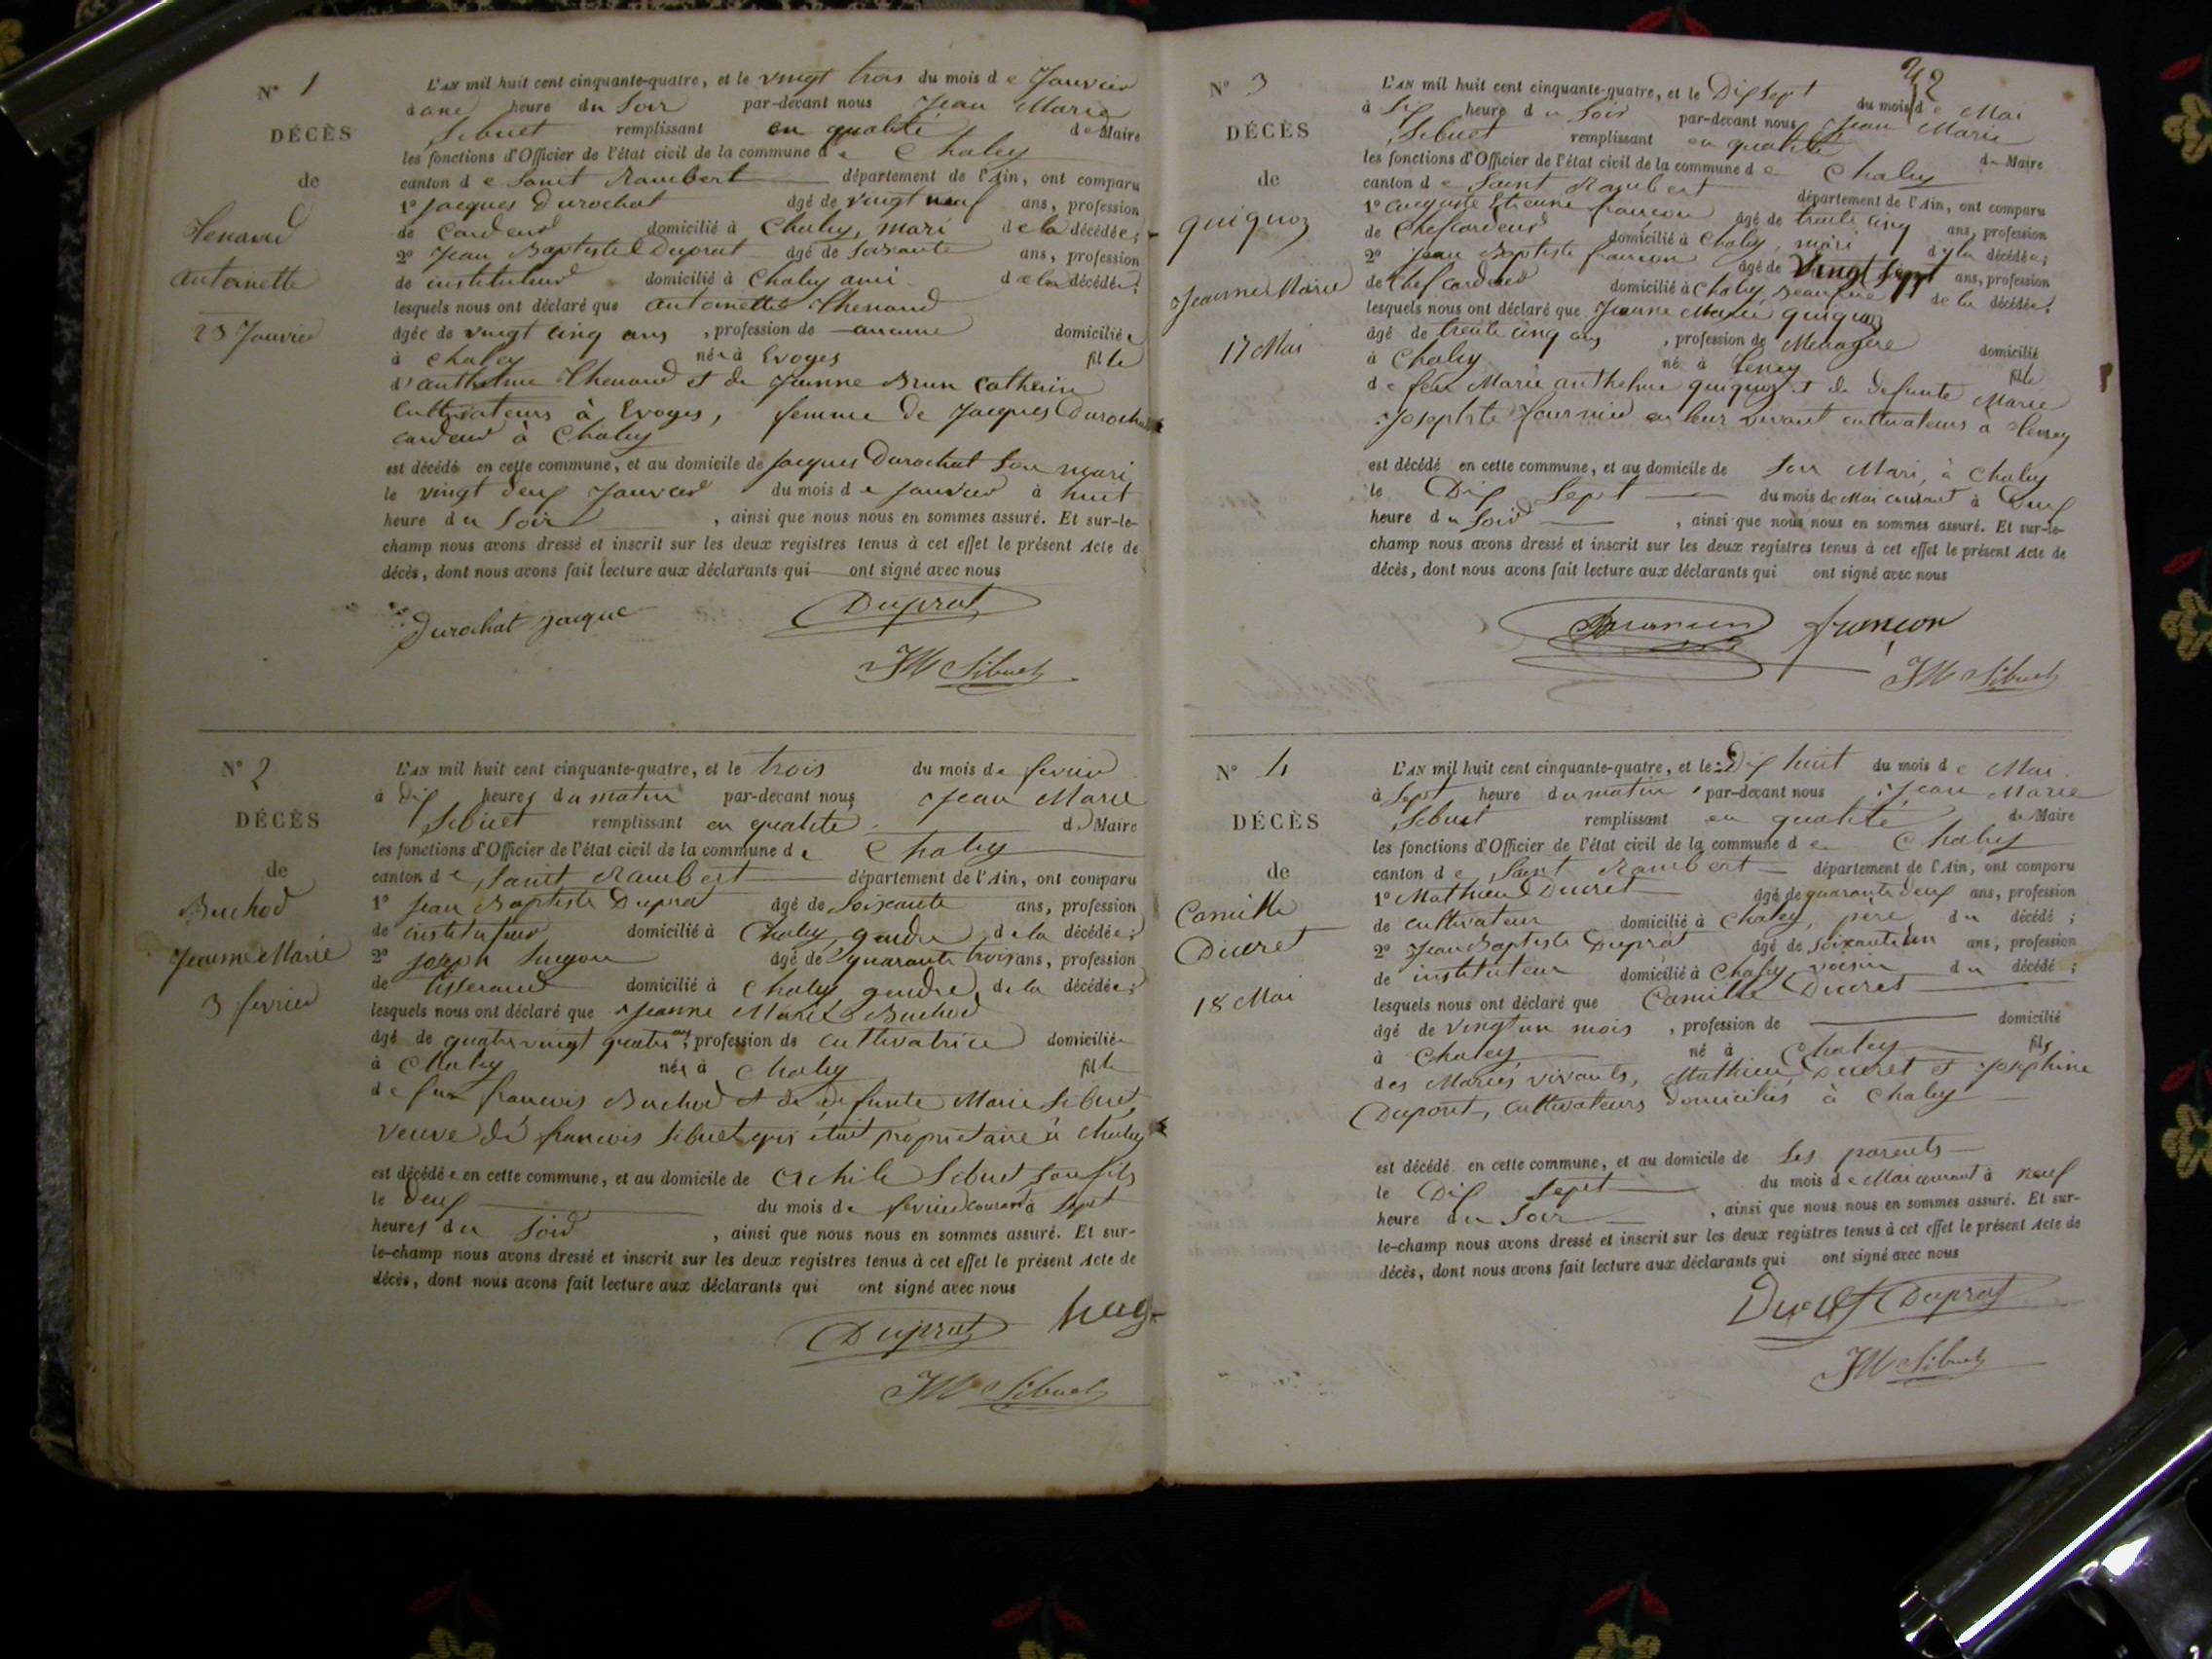 N° 1
DÉCÈS
de
Thenard
Antoinette
23 Janvier
L'AN mil huit cent cinquante-quatre, et le vingt trois du mois de Janvier
à une heure du Soir par-devant nous Jean Marie
Sibuet remplissant en qualité de Maire
les fonctions d'Officier de l'état civil de la commune de Chaley
canton de Saint Rambert département de l'Ain, ont comparu
1° Jacques Durochat âgé de vingt neuf ans, profession
de Cardeur domicilié à Chaley, mari de la décédée;
2° Jean Baptiste Duprat âgé de soixante ans, profession
de instituteur domicilié à Chaley ami de la décédée;
lesquels nous ont déclaré que antoinette Thenard
âgée de vingt cinq ans, profession de aucune domiciliée
à Chaley née à Evoges fille
d'anthelme Thenard et de Jeanne Brun Catherin
Cultivateurs à Evoges, femme de Jacques Durochat
cardeur à Chaley
est décédé en cette commune, et au domicile de Jacques Durochat son mari
le vingt deux Janvier du mois de Janvier à huit
heure du Soir, ainsi que nous nous en sommes assuré. Et sur-le-
champ nous avons dressé et inscrit sur les deux registres tenus à cet effet le présent Acte de
décès, dont nous avons fait lecture aux déclarants qui ont signé avec nous
Durochat jacque Duprat
JM Sibuet
N° 2
DÉCÈS
de
Buchod
Jeanne Marie
3 fevrier
L'AN mil huit cent cinquante-quatre, et le trois du mois de fevrier
à dix heures du matin par-devant nous Jean Marie
Sibuet remplissant en qualité de Maire
les fonctions d'Officier de l'état civil de la commune de Chaley
canton de Saint Rambert département de l'Ain, ont comparu
1° Jean Baptiste Duprat âgé de Soixante ans, profession
de instituteur domicilié à Chaley gendre de la décédée;
2° joseph hugon âgé de quarante trois ans, profession
de tisserand domicilié à Chaley gendre de la décédée;
lesquels nous ont déclaré que Jeanne Marie Buchod
âgé de quatre vingt quatre ans, profession de cultivatrice domiciliée
à Chaley née à Chaley fille
de feu francois Buchod et de defunte Marie Sibuet
veuve de francois Sibuet qui était propriétaire à Chaley
est décédée en cette commune, et au domicile de Achile Sibuet son fils
le deux du mois de fevrier courant à Sept
heures du Soir, ainsi que nous nous en sommes assuré. Et sur-
le-champ nous avons dressé et inscrit sur les deux registres tenus à cet effet le présent Acte de
décès, dont nous avons fait lecture aux déclarants qui ont signé avec nous
Duprat hug
JM Sibuet
42
N° 3
DÉCÈS
de
quiquoz
Jeanne Marie
17 Mai
L'AN mil huit cent cinquante-quatre, et le Dix Sept du mois de Mai
à Six heure du Soir par-devant nous Jean Marie
Sibuet remplissant en qualité de Maire
les fonctions d'Officier de l'état civil de la commune de Chaley
canton de Saint Rambert département de l'Ain, ont comparu
1° auguste Etienne françon âgé de trente cinq ans, profession
de Chef cardeur domicilié à Chaley, mari de la décédée;
2° Jean Baptiste françon âgé de Vingt Sept ans, profession
de Chef cardeur domicilié à Chaley beaufrere de la décédée;
lesquels nous ont déclaré que Jeanne Marie quiquoz
âgé de trente cinq ans, profession de Menagère domicilié
à Chaley né à Tenay fille
de feu Marie anthelme quiquoz et de defunte Marie
Josephte fournier en leur vivant cultivateurs a Tenay
est décédé en cette commune, et au domicile de Son Mari, à Chaley
le Dix Sept du mois de Mai courant à Deux
heure du Soir, ainsi que nous nous en sommes assuré. Et sur-le-
champ nous avons dressé et inscrit sur les deux registres tenus à cet effet le présent Acte de
décès, dont nous avons fait lecture aux déclarants qui ont signé avec nous
françon
JM Sibuet
N° 4
DÉCÈS
de
Camille
Ducret
18 Mai
L'AN mil huit cent cinquante-quatre, et le Dix huit du mois de Mai
à Sept heure du matin par-devant nous Jean Marie
Sibuet remplissant en qualité de Maire
les fonctions d'Officier de l'état civil de la commune de Chaley
canton de Saint Rambert département de l'Ain, ont comparu
1° Mathieu Ducret âgé de quarante deux ans, profession
de cultivateur domicilié à Chaley, père du décédé;
2° Jean Baptiste Duprat âgé de soixante un ans, profession
de instituteur domicilié à Chaley voisin du décédé;
lesquels nous ont déclaré que Camille Ducret
âgé de vingt un mois, profession de domicilié
à Chaley né à Chaley fils
des Mariés vivants, Mathieu Ducret et Josephine
Dupont, cultivateurs domiciliés à Chaley
est décédé en cette commune, et au domicile de Ses parents
le Dix Sept du mois de Mai courant à neuf
heure du Soir, ainsi que nous nous en sommes assuré. Et sur-
le-champ nous avons dressé et inscrit sur les deux registres tenus à cet effet le présent Acte de
décès, dont nous avons fait lecture aux déclarants qui ont signé avec nous
Ducret Duprat
JM Sibuet